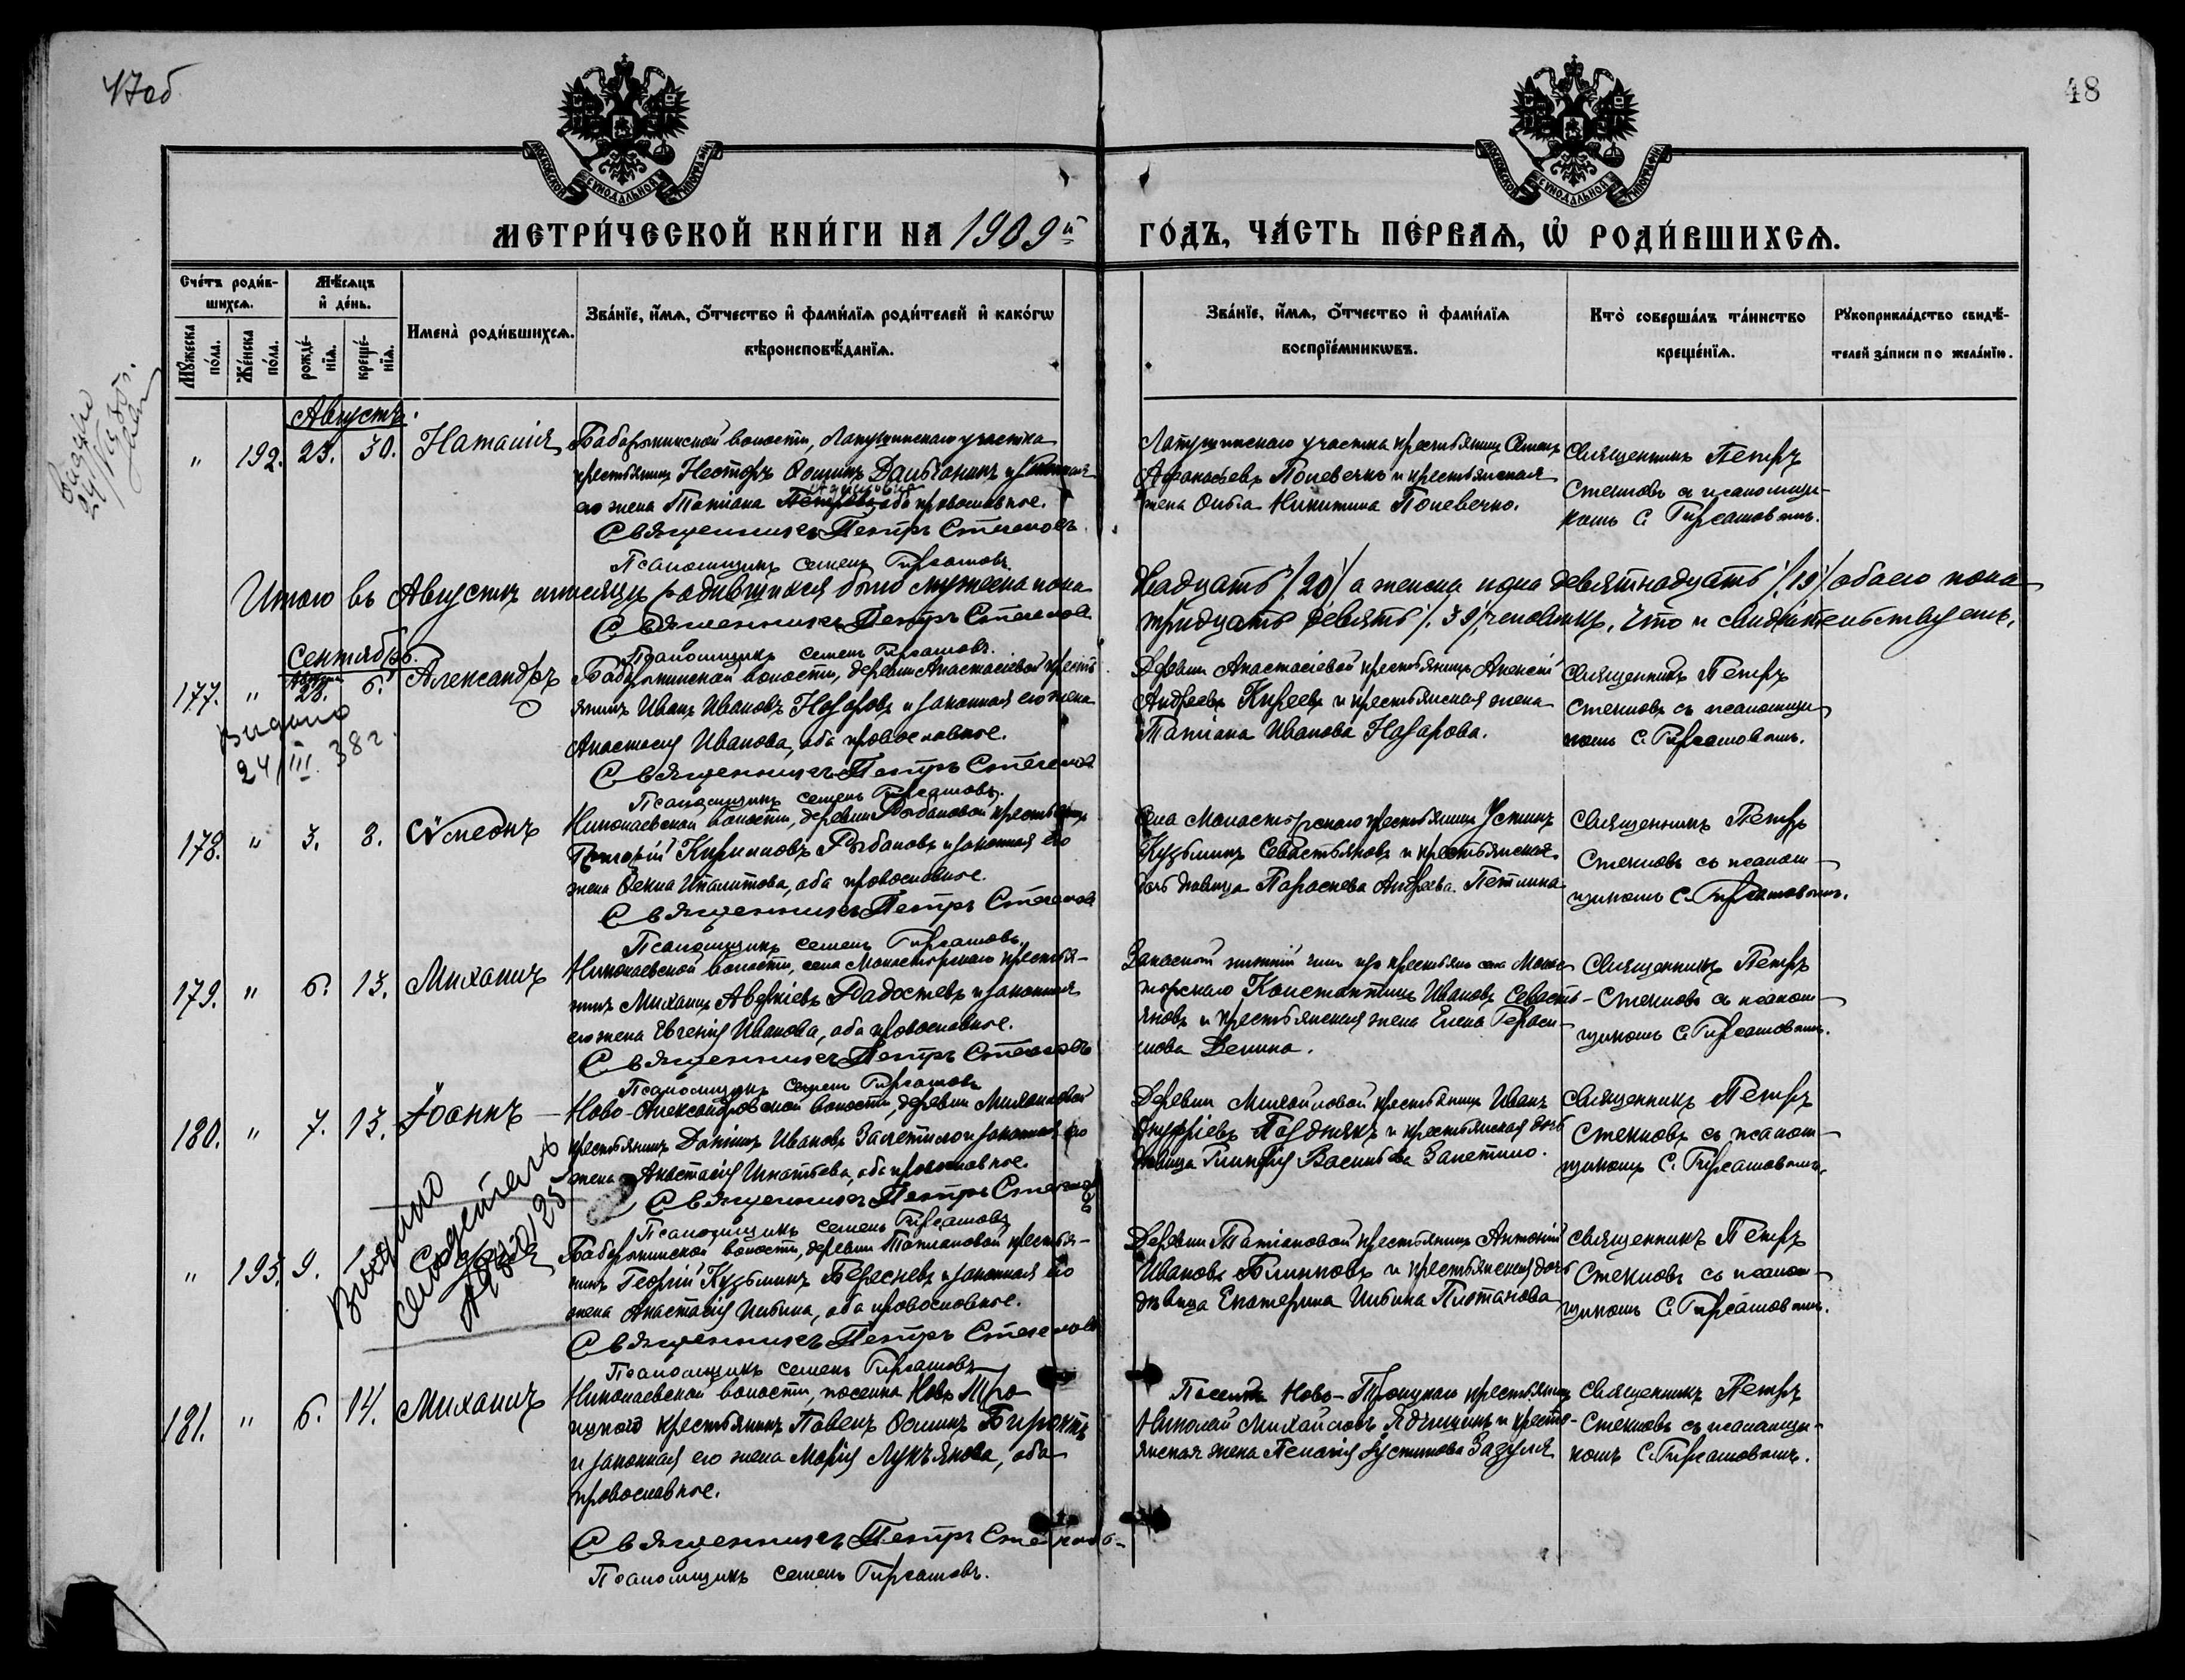 47об
48
МОСКОВСКОЙ СУНОДАЛЬНОЙ ТИПОГРАФІИ
МОСКОВСКОЙ СУНОДАЛЬНОЙ ТИПОГРАФІИ
МЕТРИ́ЧЕСКОЙ КНИ́ГИ НА 1909й ГО́ДЪ, ЧА́СТЬ ПЕ́РВАѦ, Ѡ҆ РОДИ́ВШИХСѦ.
Сче́тъ роди́в-
шихсѧ.
Мѣ́сѧцъ
и҆ де́нь.
Мꙋ́жеска по́ла.
Же́нска по́ла.
рожде́-
нїѧ.
креще́-
нїѧ.
Имена̀ роди́вшихсѧ.
Зва́нїе, и҆́мѧ, ѻ҆́тчество и҆ фами́лїѧ роди́телей и҆ како́гѡ
вѣроисповѣ́данїѧ.
Зва́нїе, и҆́мѧ, ѻ҆́тчество и҆ фами́лїѧ
воспрїе́мникѡвъ.
Кто̀ соверша́лъ та́инство
креще́нїѧ.
Рꙋкоприкла́дство свидѣ́-
телей за́писи по жела́нїю.
Августъ.
" 192. 23. 30. Наталія
Бабарыкинской волости, Лапушинскаго участка
крестьянинъ Несторъ Ѳоминъ и законная
его жена Татіана оба православные.
Священникъ Петръ Стеклов
Псаломщикъ Семенъ Гирсамовъ
Лапушинскаго участка крестьянинъ Семенъ
Афанасьевъ Полевечко и крестьянская
жена Ольга Никитина Полевечко.
Священникъ Петръ
Стекловъ съ псаломщи-
комъ С. Гирсамовымъ.
Итого въ Августѣ мѣсяцѣ родившихся было мужеска пола
двадцать /20/ а женска пола девятнадцать /19/ обоего пола
тридцать девять /39/ человѣкъ. Что и свидѣтельствуемъ.
Священникъ Петръ Стеклов
Псаломщикъ Семенъ Гирсамовъ.
Сентябрь.
177. " 23. 6. Александръ
Бабарыкинской волости, деревни Анастасіевой кресть-
янинъ Иванъ Ивановъ Назаровъ и законная его жена
Анастасія Иванова, оба православные.
Священникъ Петръ Стеклов
Псаломщикъ Семенъ Гирсамовъ.
Деревни Анастасіевой крестьянинъ Алексѣй
Андреевъ Киреевъ и крестьянская жена
Татіана Иванова Назарова.
Священникъ Петръ
Стекловъ съ псаломщи-
комъ С. Гирсамовымъ.
Выдано
24/III 38 г.
178. " 3. 8. Сѷмеонъ
Николаевской волости, деревни Рыбаловой крестьянинъ
Григорій Кириловъ Рыбаловъ и законная его
жена Ѳекла Ипалитова, оба православные.
Священникъ Петръ Стеклов
Псаломщикъ Семенъ Гирсамовъ.
Села Монастырскаго крестьянинъ Устинъ
Кузьминъ Севастьяновъ и крестьянская
дочь дѣвица Параскева Андреева Петлина
Священникъ Петръ
Стекловъ съ псалом-
щикомъ С. Гирсамовымъ.
179. " 6. 13. Михаилъ
Николаевской волости, села Монастырскаго крестья-
нинъ Михаилъ Аверкіевъ Радостевъ и законная
его жена Евгенія Иванова, оба православные.
Священникъ Петръ Стекловъ
Псаломщикъ Семенъ Гирсамовъ
Запасной нижній чинъ изъ крестьянъ села Монас-
тырскаго Константинъ Ивановъ Севасть-
яновъ и крестьянская жена Елена Гераси-
мова Демина.
Священникъ Петръ
Стекловъ съ псалом-
щикомъ С. Гирсамовымъ.
180. " 7. 13. Іоаннъ
Ново-Александровской волости, деревни Михайловой
крестьянинъ Даніилъ Ивановъ Залетило и законная его
жена Анастасія Игнатьева, оба православные.
Священникъ Петръ Стеклов
Псаломщикъ Семенъ Гирсамовъ
Деревни Михайловой крестьянинъ Иванъ
Онуфріевъ Позднякъ и крестьянская дочь
дѣвица Гликерія Васильева Залетило.
Священникъ Петръ
Стекловъ съ псалом-
щикомъ С. Гирсамовымъ.
Выдано
" 193. 9.
Бабарыкинской волости, деревни Татіановой крестья-
нинъ Георгій Кузьминъ Береснев и законная его
жена Анастасія Ильина, оба православные.
Священникъ Петръ Стеклов
Псаломщикъ Семенъ Гирсамовъ
Деревни Татіановой крестьянинъ Антоній
Ивановъ Блинковъ и крестьянская дочь
дѣвица Екатерина Ильина Плотанова
Священникъ Петръ
Стекловъ съ псалом-
щикомъ С. Гирсамовымъ.
181. " 6. 14. Михаилъ
Николаевской волости, поселка Ново Тро-
ицкаго крестьянинъ Павелъ Ѳоминъ
и законная его жена Марія Лукъянова, оба
православные.
Священникъ Петръ Стекловъ
Псаломщикъ Семенъ Гирсамовъ.
Поселка Ново-Троицкаго крестьянинъ
Николай Михайловъ и кресть-
янская жена Пелагія Іустинова Зазуля
Священникъ Петръ
Стекловъ съ псаломщи-
комъ С. Гирсамовымъ.